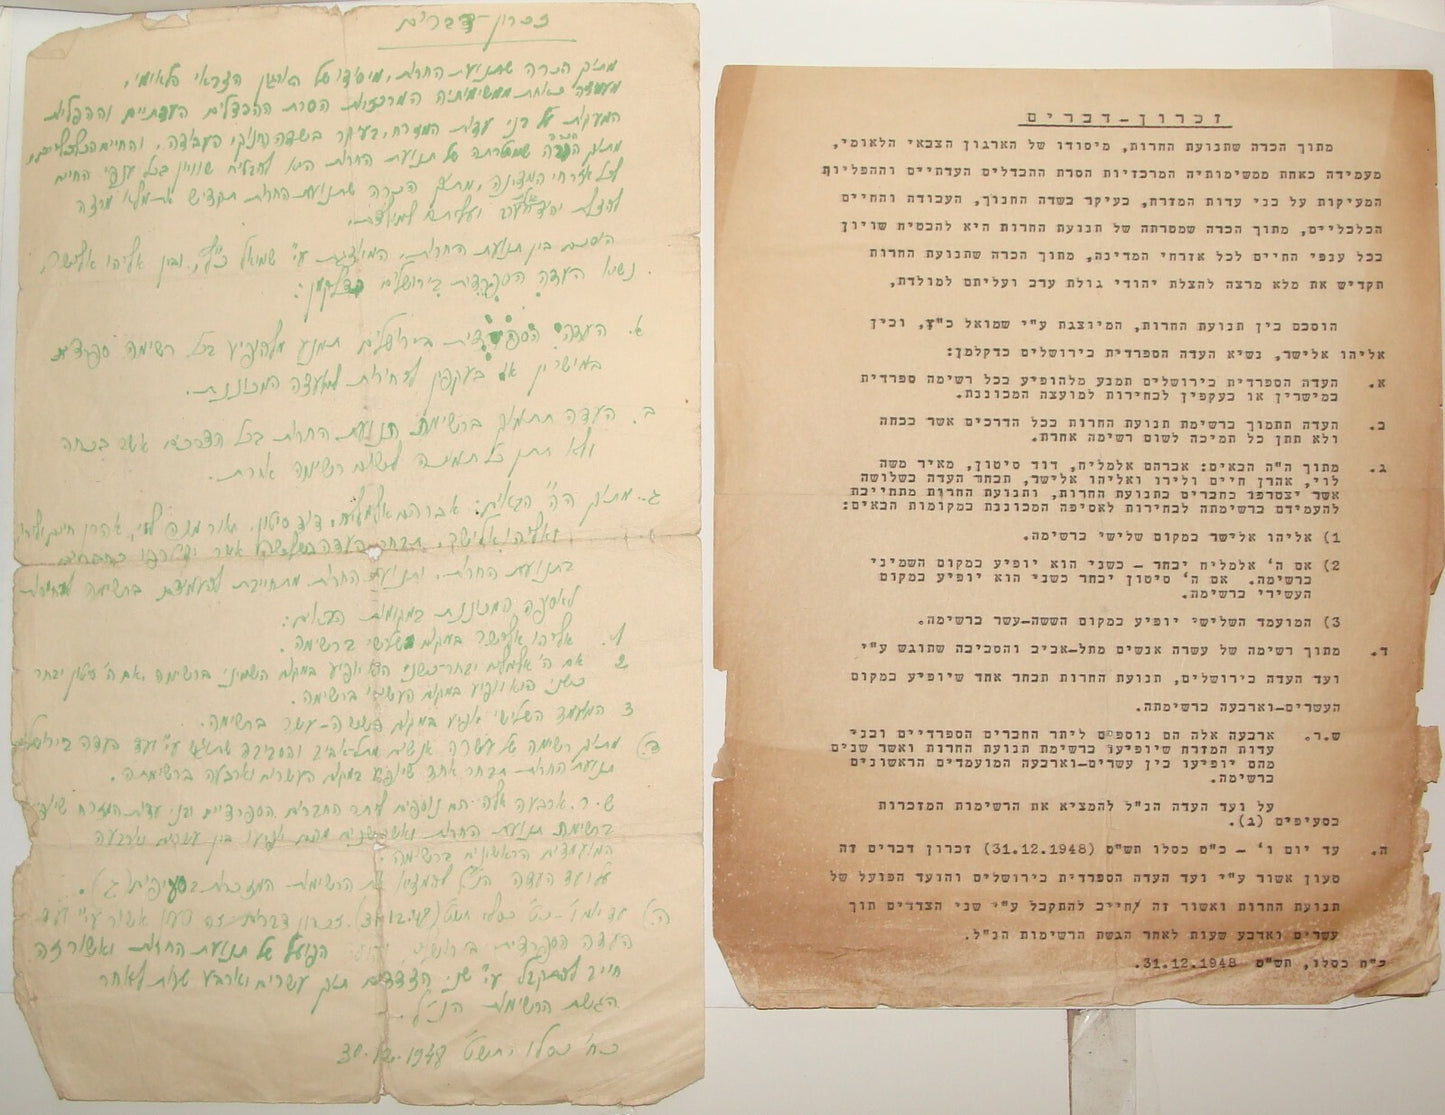 זכרון-דברים
מתוק הכרה שתנועת החרות, מיסודו של הארגון הצבאי הלאומי,
מעמידה כאחת ממשימותיה המרכזיות הסרת ההבדלים העדתיים וההפליות
המעיקות על בני עדות המזרח, בעיקר בשדה החנוך, העבודה, והחיים הכלכליים,
מתוך הכרה שמטרתה של תנועת החרות היא להבטיח שוויון בכל ענפי החיים
לכל אזרחי המדינה, מתוך הכרה שתנועת החרות תקדיש את מלא מרצה
להצלת יהודי גלות ערב ועליתם למולדת.
הוסכם בין תנועת החרות, המיוצגת ע"י שמואל כ"ץ, ובין אליהו אלישר,
נשיא העדה הספרדית בירושלים כדלקמן:
א. העדה הספרדית בירושלים תמנע מלהופיע בכל רשימה ספרדית
במישרין או בעקפין לבחירות למועצה המכוננת.
ב. העדה תתמוך ברשימת תנועת החרות בכל הדרכים אשר בכחה
ולא תתן כל תמיכה לשום רשימה אחרת.
ג. מתוך הה' הבאים: אברהם אלמליח, דוד סיטון, מאיר משה לוי, אהרן חיים ולירו
ואליהו אלישר, תבחר העדה בשלושה אשר יצטרפו כחברים
בתנועת החרות, ותנועת החרות מתחייבת להעמידם ברשימתה לבחירות
לאסיפה המכוננת במקומות הבאים:
1. אליהו אלישר במקום שלישי ברשימה.
2 אם ה' אלמליח יבחר כשני הוא יופיע במקום השמיני ברשימה, אם ה' סיטון יבחר
כשני הוא יופיע במקום העשירי ברשימה.
3 המועמד השלישי יופיע במקום הששה-עשר ברשימה.
ד) מתוק רשימה של עשרה אנשים מתל-אביב והסביבה שתוגש ע"י ועד העדה בירושלים
תנועת החרות תבחר אחד שיופיע במקום העשרים וארבעה ברשימתה.
ש.ר. ארבעה אלה הם נוספים ליתר החברים הספרדיים ובני עדות המזרח שיופיעו
ברשימת תנועת החרות ואשר שנים מהם יופיעו בין עשרים וארבעה
המועמדים הראשונים ברשימה.
על ועד העדה הנ"ל להמציא את הרשימות המוזכרות בסעיפים (ג).
ה) עד יום ו' - כט' כסלו תש"ט (31.12.48). זכרון דברים זה טעון אשור ע"י ועד
העדה הספרדית בירושלים והועד הפועל של תנועת החרות ואשור זה
חייב להתקבל ע"י שני הצדדים תוך עשרים וארבע שעות לאחר
הגשת הרשימות הנ"ל.
כח' כסלו תש"ט 30.12.1948
זכרון-דברים
מתוך הכרה שתנועת החרות, מיסודו של הארגון הצבאי הלאומי,
מעמידה כאחת ממשימותיה המרכזיות הסרת ההבדלים העדתיים וההפליות
המעיקות על בני עדות המזרח, בעיקר בשדה החנוך, העבודה והחיים
הכלכליים, מתוך הכרה שמטרתה של תנועת החרות היא להבטיח שויון
בכל ענפי החיים לכל אזרחי המדינה, מתוך הכרה שתנועת החרות
תקדיש את מלא מרצה להצלת יהודי גולת ערב ועליתם למולדת,
הוסכם בין תנועת החרות, המיוצגת ע"י שמואל כ"ץ, ובין
אליהו אלישר, נשיא העדה הספרדית בירושלים כדקלמן:
א. העדה הספרדית בירושלים תמנע מלהופיע בכל רשימה ספרדית
במישרין או בעקפין לבחירות למועצה המכוננת.
ב. העדה תתמוך ברשימת תנועת החרות בכל הדרכים אשר בכחה
ולא תתן כל תמיכה לשום רשימה אחרת.
ג. מתוך ה"ה הבאים: אברהם אלמליח, דוד סיטון, מאיר משה
לוי, אהרן חיים ולירו ואליהו אלישר, תבחר העדה בשלושה
אשר יצטרפו כחברים בתנועת החרות, ותנועת החרות מתחייבת
להעמידם ברשימתה לבחירות לאסיפה המכוננת במקומות הבאים:
1) אליהו אלישר במקום שלישי ברשימה.
2) אם ה' אלמליח יבחר - כשני הוא יופיע במקום השמיני
ברשימה. אם ה' סיטון יבחר כשני הוא יופיע במקום
העשירי ברשימה.
3) המועמד השלישי יופיע במקום הששה-עשר ברשימה.
ד. מתוך רשימה של עשרה אנשים מתל-אביב והסביבה שתוגש ע"י
ועד העדה בירושלים, תנועת החרות תבחר אחד שיופיע במקום
העשרים-וארבעה ברשימתה.
ש.ר. ארבעה אלה הם נוספים ליתר החברים הספרדיים ובני
עדות המזרח שיופיעו ברשימת תנועת החרות ואשר שנים
מהם יופיעו בין עשרים-וארבעה המועמדים הראשונים
ברשימה.
על ועד העדה הנ"ל להמציא את הרשימות המוזכרות
בסעיפים (ג).
ה. עד יום ו' - כ"ט כסלו תש"ט (31.12.1948) זכרון דברים זה
טעון אשור ע"י ועד העדה הספרדית בירושלים והועד הפועל של
תנועת החרות ואשור זה חייב להתקבל ע"י שני הצדדים תוך
עשרים וארבע שעות לאחר הגשת הרשימות הנ"ל.
כ"ח כסלו, תש"ט 31.12.1948.